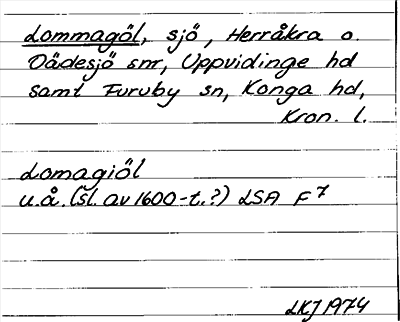 Lommagöl, sjö, Herråkra o.
Dädesjö snr, Uppvidinge hd
samt Furuby sn, Konga hd,
Kron. l.
Lomagiöl
u.å. (sl. av 1600-t.?) LSA F 7
LKJ 1974